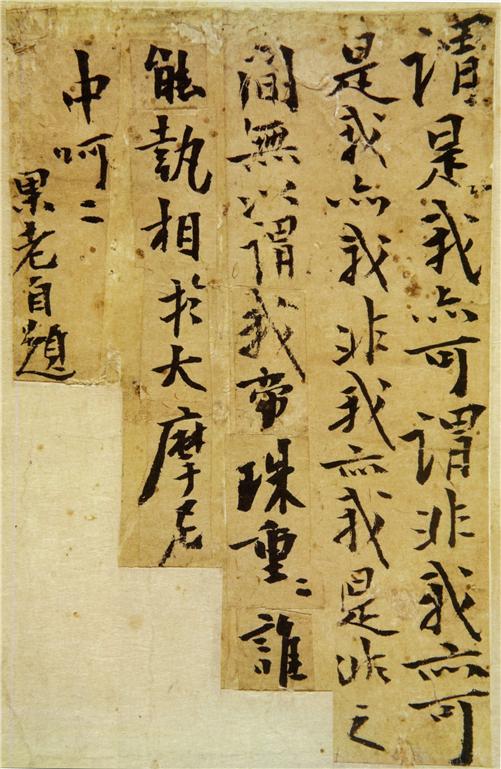 謂是我亦可謂非我亦可
是我亦我非我亦我是非之
間無以謂我帝珠重〻誰
能執相於大摩尼
中呵〻
果老自題